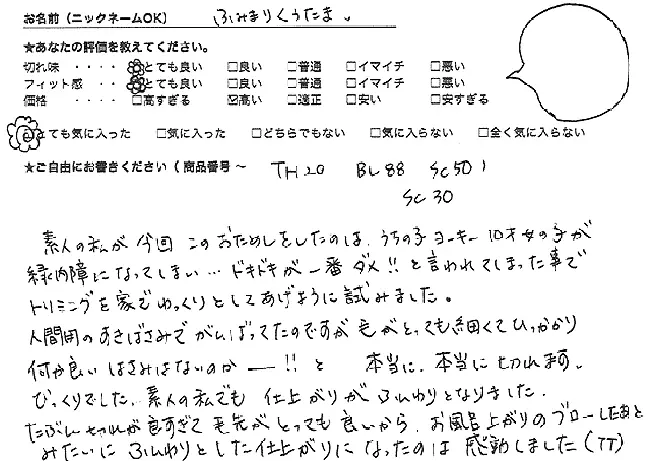 お名前（ニックネームOK） ふみまりくうたま。
★あなたの評価を教えてください。
切れ味 ・・・・ とても良い □良い □普通 □イマイチ □悪い
フィット感 ・・ とても良い □良い □普通 □イマイチ □悪い
価格 ・・・・ □高すぎる ☑高い □適正 □安い □安すぎる
とても気に入った □気に入った □どちらでもない □気に入らない □全く気に入らない
★ご自由にお書きください（商品番号〜 TH20 BL88 SC501
SC30
素人の私が今回このおためしをしたのは、うちの子ヨーキー10才女の子が
緑内障になってしまい…ドキドキが一番ダメ!!と言われてしまった事で
トリミングを家でゆっくりとしてあげように試みました。
人間用のすきばさみでがんばってたのですが毛がとっても細くてひっかかり
何か良いはさみはないのかー!!と 本当に、本当に切れます。
びっくりでした。素人の私でも仕上がりがふんわりとなりました。
たぶん切れが良すぎて毛先がとっても良いから、お風呂上がりのブローしたあと
みたいにふんわりとした仕上がりになったのは感動しました（TT）